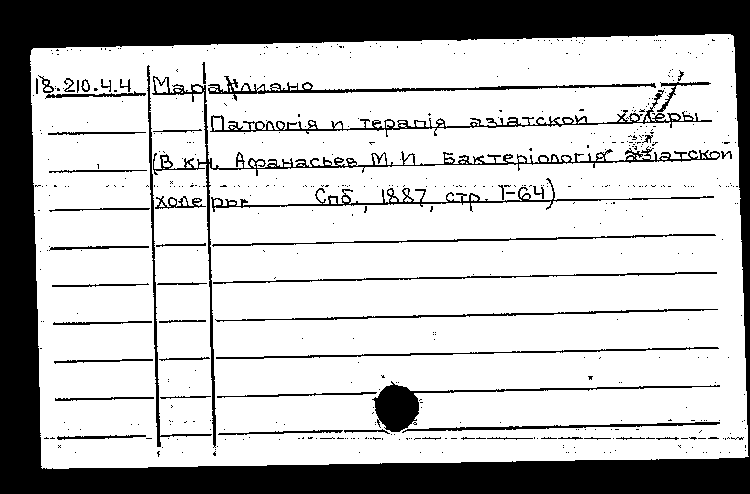 18.210.4.4. Мараглиано
Патологія и терапія азіатской холеры
(В кн. Афанасьев, М. И. Бактеріологія азіатской
холеры. Спб., 1887, стр. I-64)